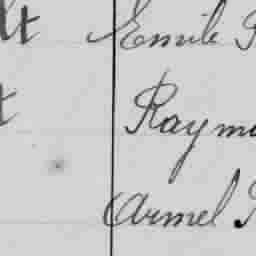 lt Emile
t Raymo
Armel